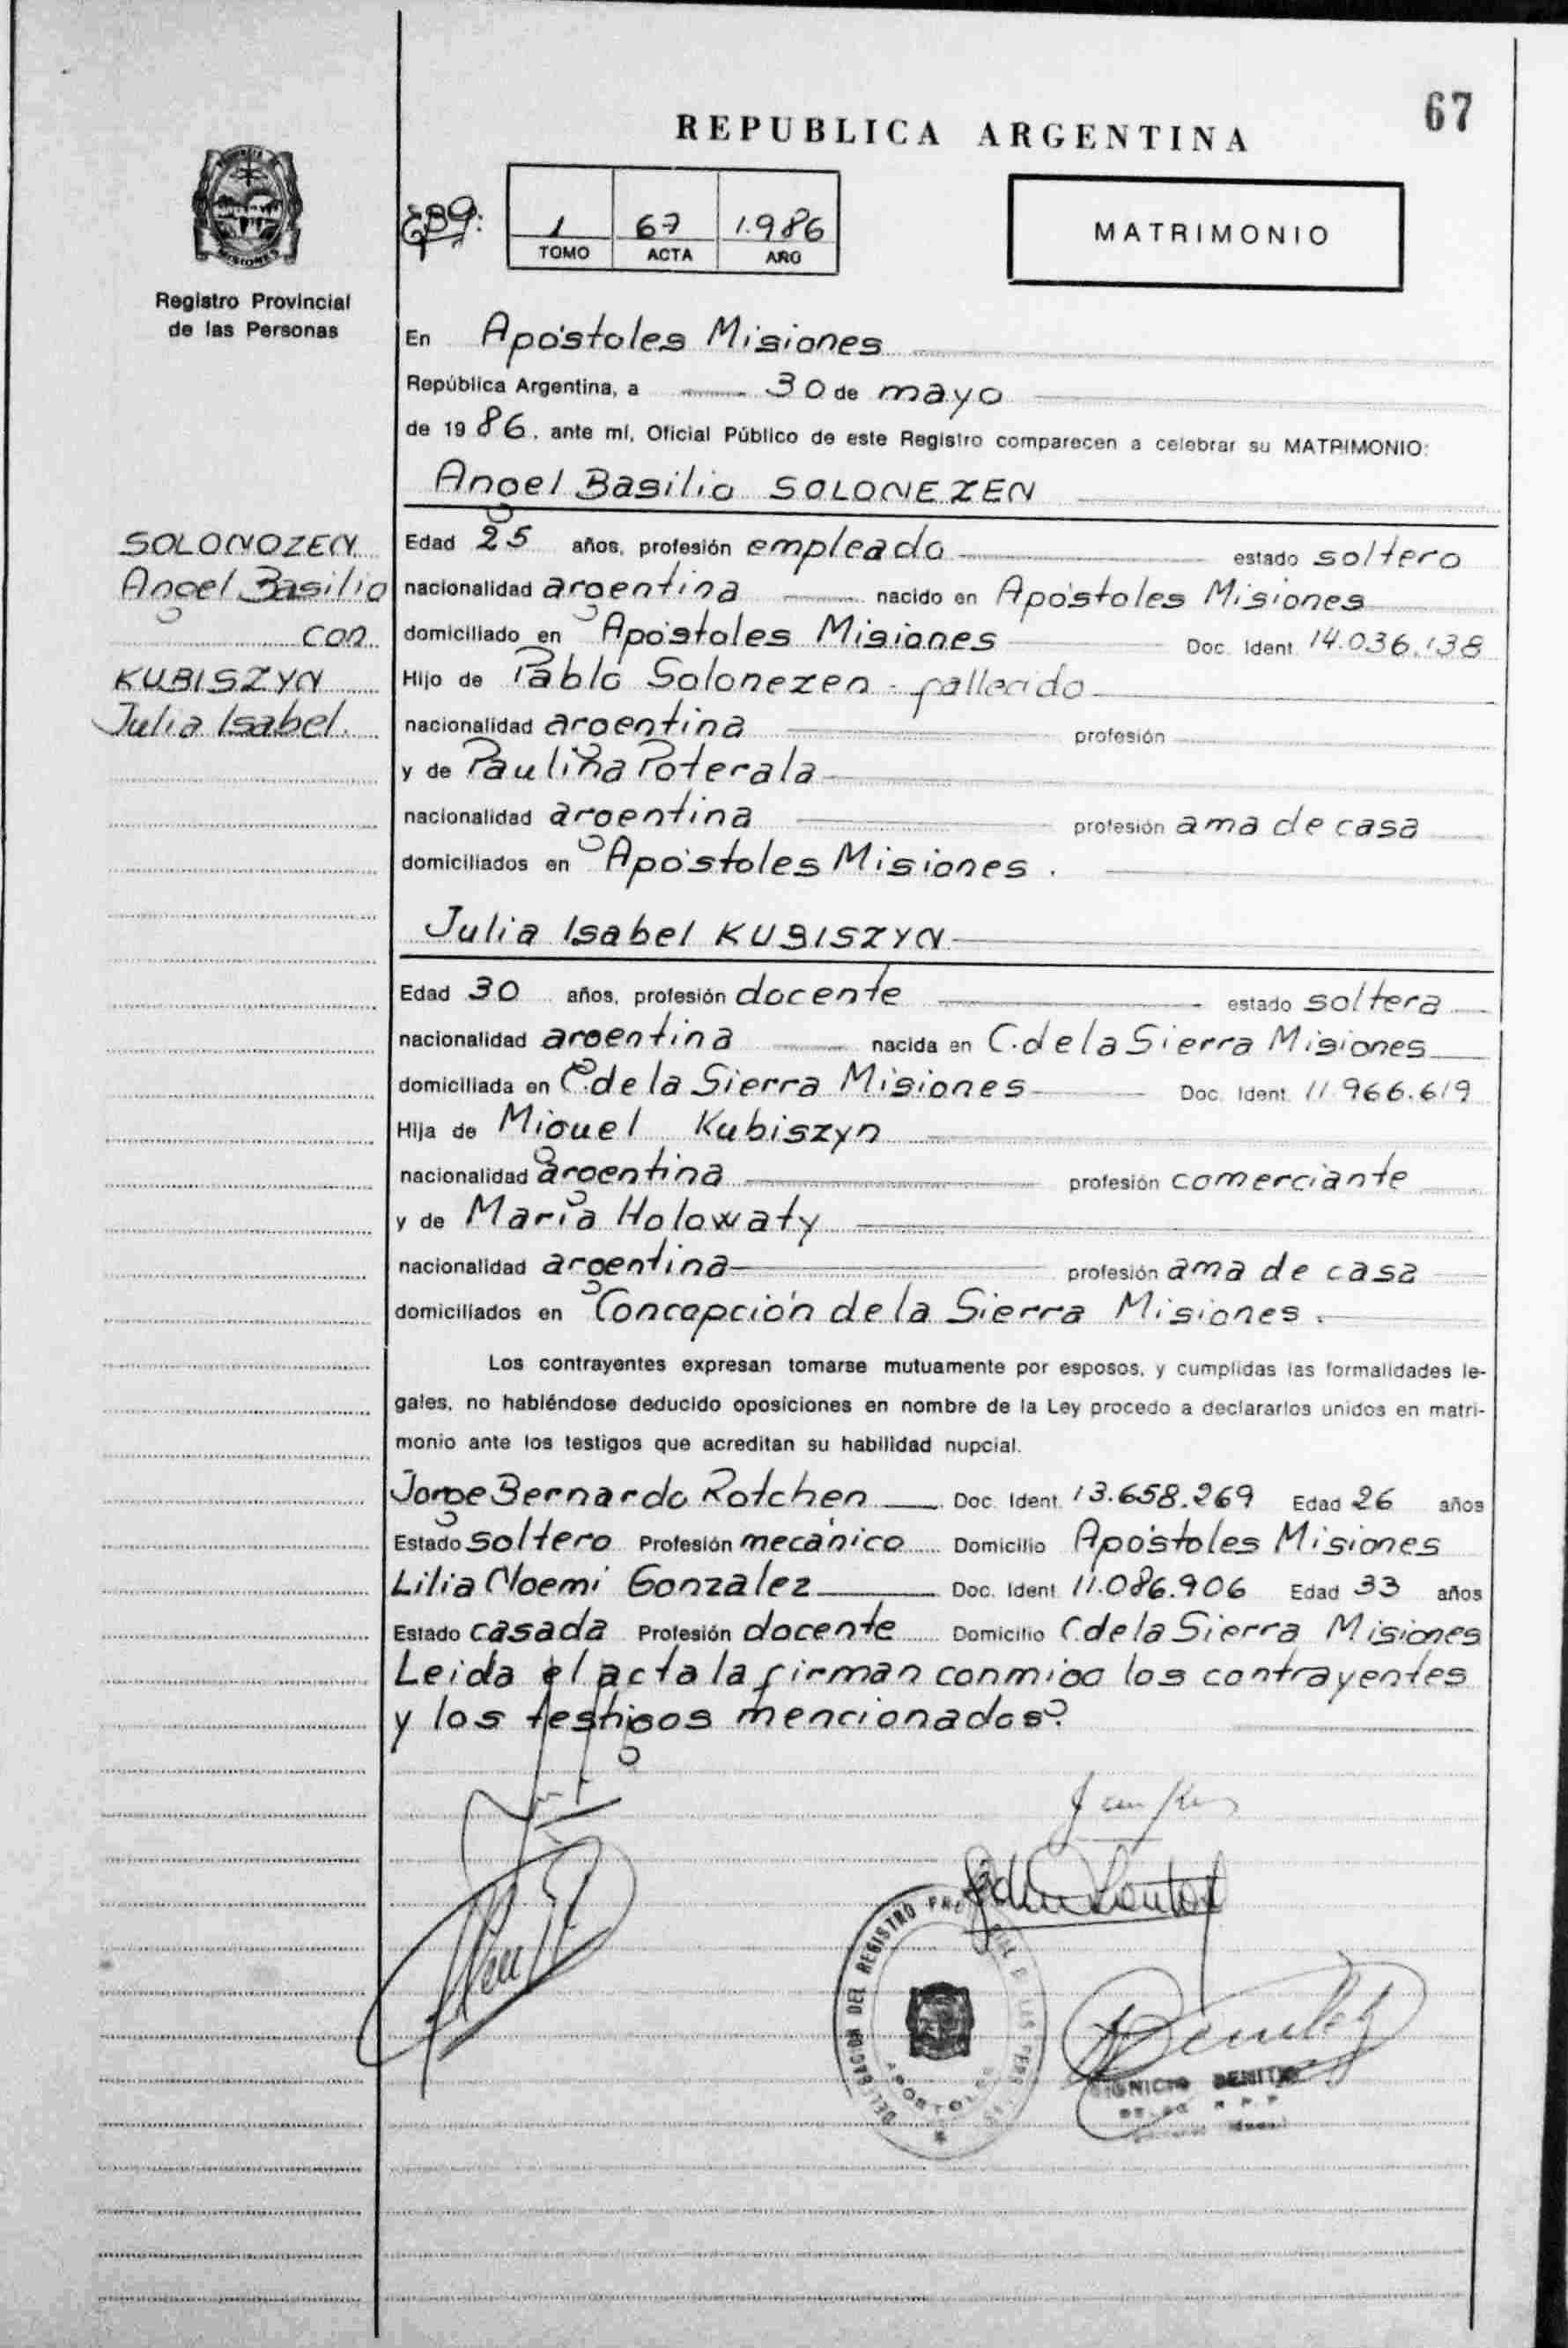 67
REPUBLICA ARGENTINA
1 67 1.986
TOMO ACTA AÑO
MATRIMONIO
MISIONES
Registro Provincial
de las Personas
En Apóstoles Misiones
República Argentina, a 30 de mayo
de 1986, ante mí, Oficial Público de este Registro comparecen a celebrar su MATRIMONIO:
Angel Basilio SOLONEZEN
SOLONOZEN
Angel Basilio
con
KUBISZYN
Julia Isabel.
Edad 25 años, profesión empleado estado soltero
nacionalidad argentina nacido en Apóstoles Misiones
domiciliado en Apóstoles Misiones Doc. Ident. 14.036.138
Hijo de Pablo Solonezen - fallecido
nacionalidad argentina profesión
y de Paulina Poterala
nacionalidad argentina profesión ama de casa
domiciliados en Apóstoles Misiones.
Julia Isabel KUBISZYN
Edad 30 años, profesión docente estado soltera
nacionalidad argentina nacida en C. de la Sierra Misiones
domiciliada en C. de la Sierra Misiones Doc. Ident. 11.966.619
Hija de Miguel Kubiszyn
nacionalidad argentina profesión comerciante
y de María Holowaty
nacionalidad argentina profesión ama de casa
domiciliados en Concepción de la Sierra Misiones.
Los contrayentes expresan tomarse mutuamente por esposos, y cumplidas las formalidades le-
gales, no habiéndose deducido oposiciones en nombre de la Ley procedo a declararlos unidos en matri-
monio ante los testigos que acreditan su habilidad nupcial.
Jorge Bernardo Rotchen Doc. Ident. 13.658.269 Edad 26 años
Estado soltero Profesión mecánico Domicilio Apóstoles Misiones
Lilia Noemi Gonzalez Doc. Ident. 11.086.906 Edad 33 años
Estado casada Profesión docente Domicilio C de la Sierra Misiones
Leida el acta la firman conmigo los contrayentes
y los testigos mencionados.
DELEGACION DEL REGISTRO
APOSTOLES
BENITO